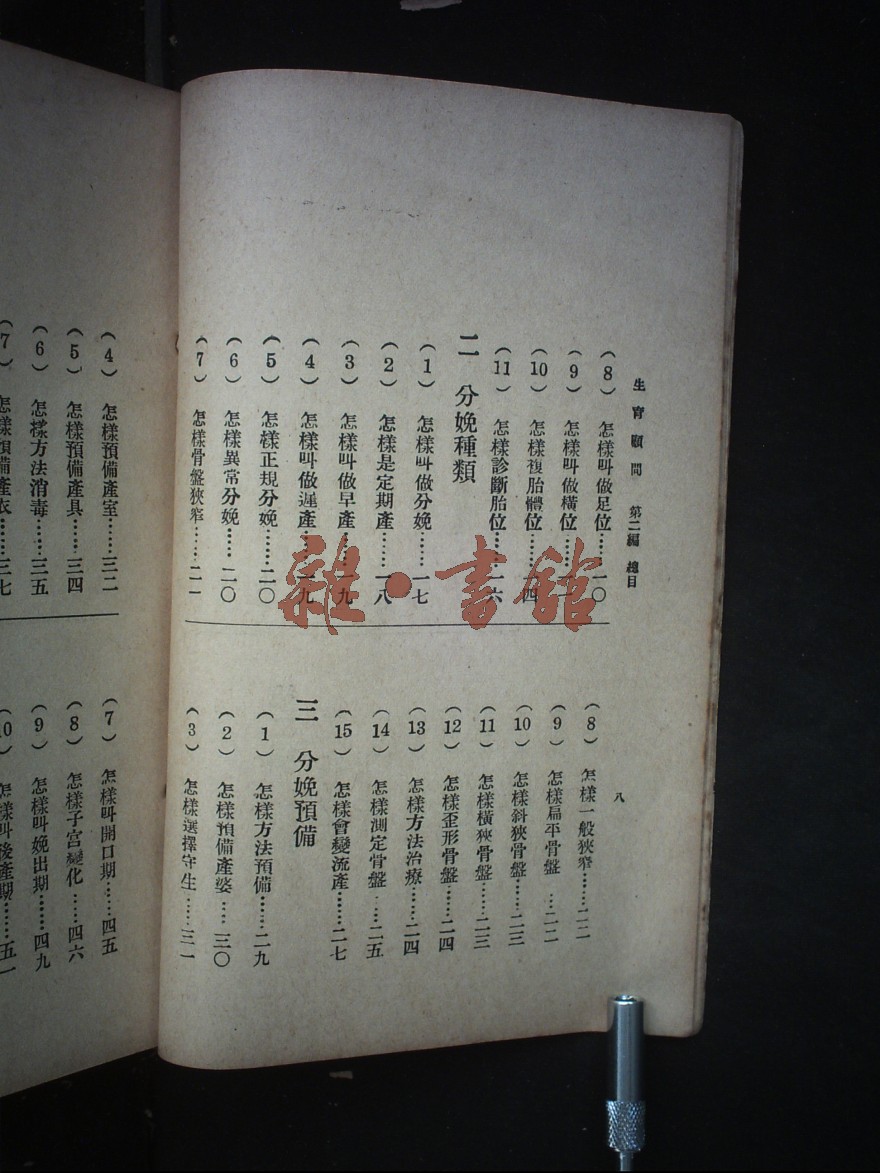 生育顧問　第二編　總目
八
(8)　怎樣叫做足位……一〇
(9)　怎樣叫做橫位……
(10)　怎樣複胎體位……四
(11)　怎樣診斷胎位……一六
二　分娩種類
(1)　怎樣叫做分娩……一七
(2)　怎樣是定期產……一八
(3)　怎樣叫做早產……一九
(4)　怎樣叫做遲產……一九
(5)　怎樣正規分娩……二〇
(6)　怎樣異常分娩……二〇
(7)　怎樣骨盤狹窄……二一
(8)　怎樣一般狹窄……二二
(9)　怎樣扁平骨盤…二二
(10)　怎樣斜狹骨盤……二三
(11)　怎樣橫狹骨盤……二三
(12)　怎樣歪形骨盤……二四
(13)　怎樣方法治療……二四
(14)　怎樣測定骨盤…二五
(15)　怎樣會變流產……二七
三　分娩預備
(1)　怎樣方法預備……二九
(2)　怎樣預備產婆……三〇
(3)　怎樣選擇守生……三一
(4)　怎樣預備產室……三二
(5)　怎樣預備產具……三四
(6)　怎樣方法消毒……三五
(7)　怎樣預備產衣……三七
(7)　怎樣叫開口期……四五
(8)　怎樣子宮變化……四六
(9)　怎樣叫娩出期……四九
怎樣叫後產期……五一
雜·書館